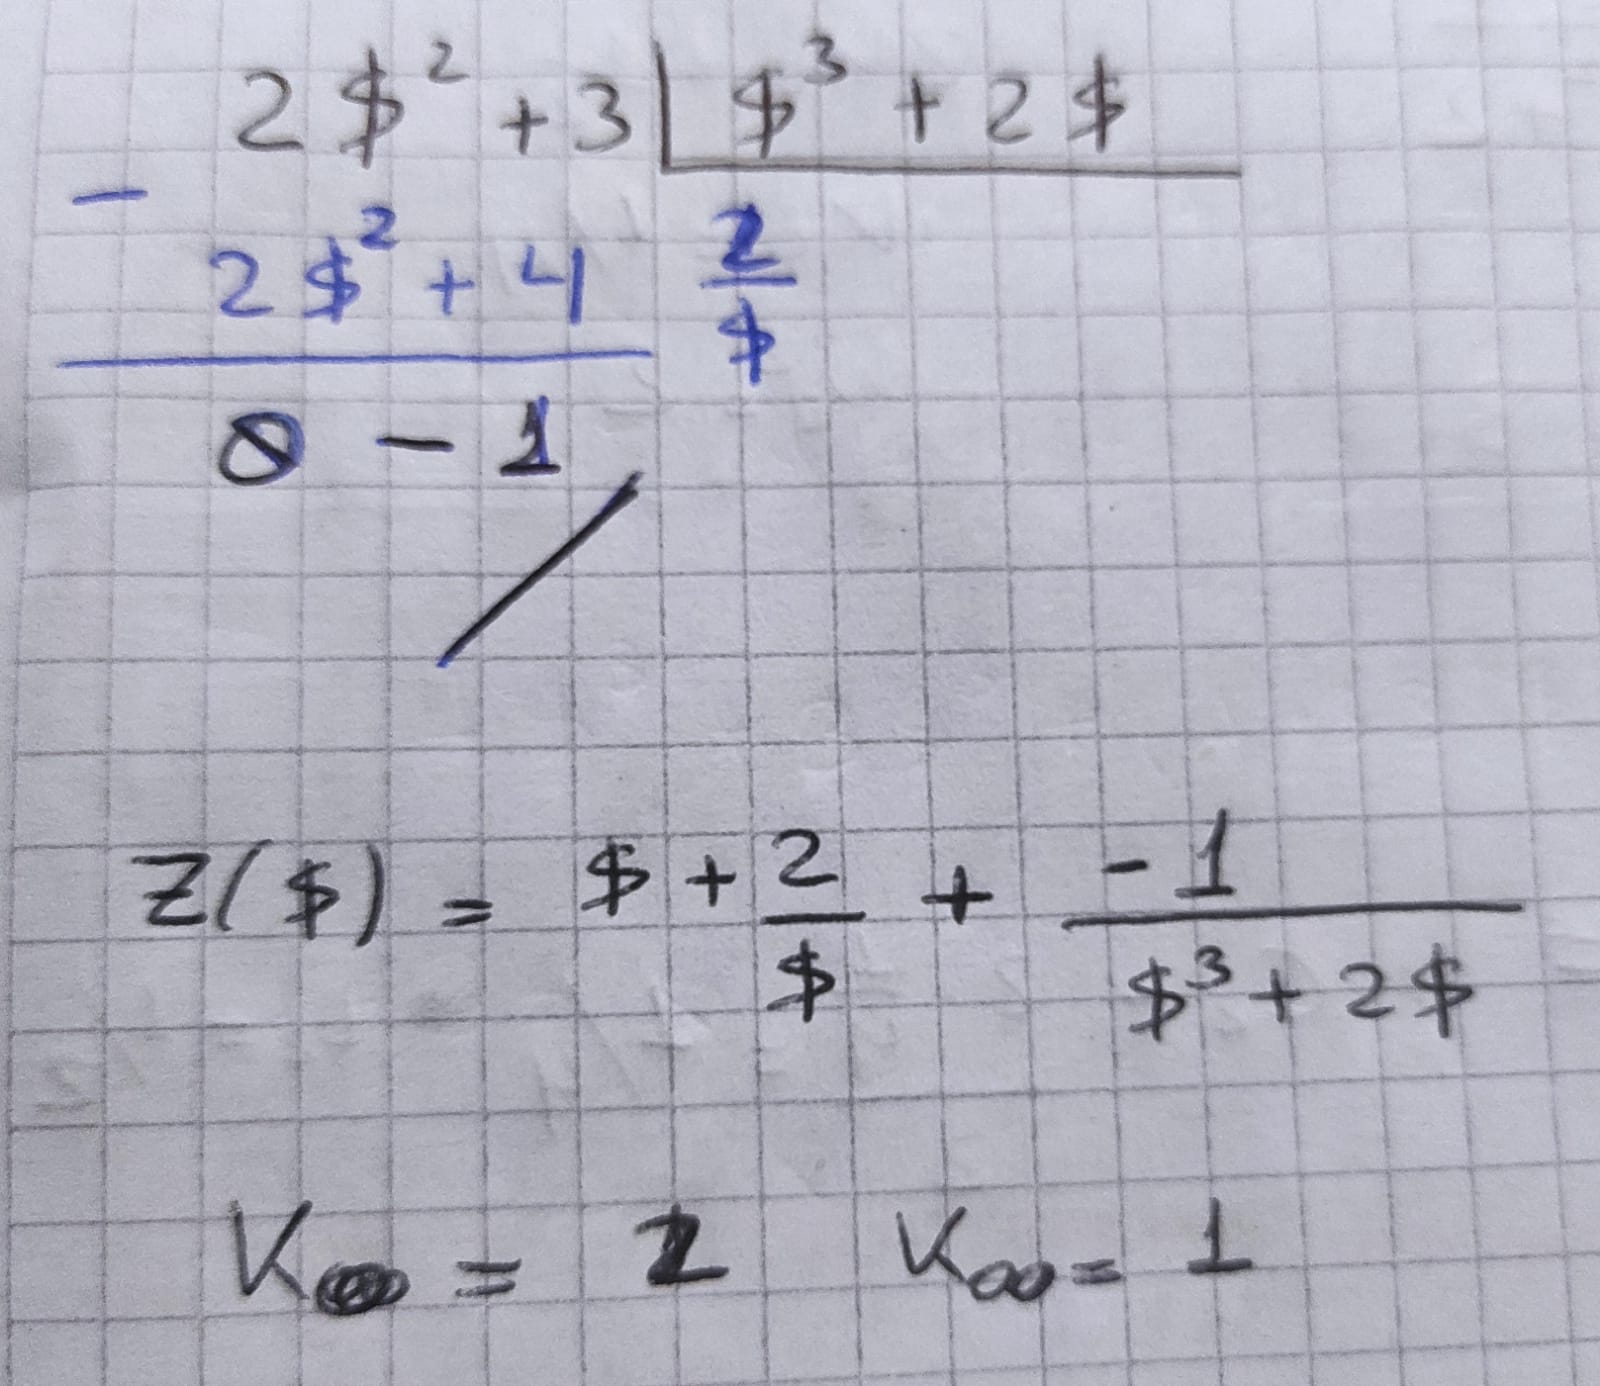 2$² + 3 | $³ + 2$
− 2$² + 4 2/$
0 − 1
Z($) = $ + 2/$ + −1/($³ + 2$)
K = 2 K∞ = 1